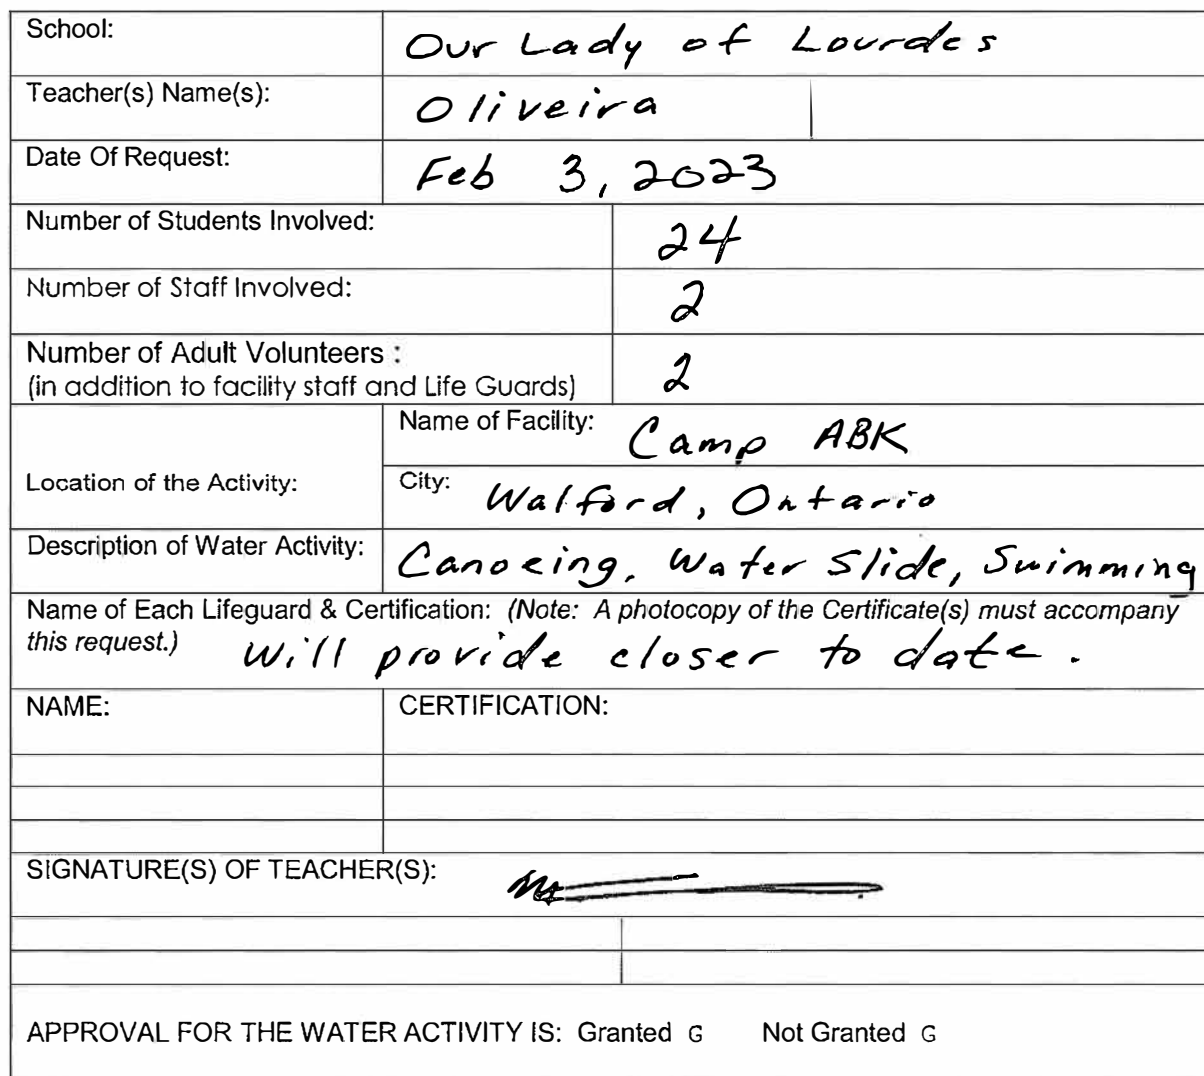 School: Our Lady of Lourdes
Teacher(s) Name(s): Oliveira
Date Of Request: Feb 3, 2023
Number of Students Involved: 24
Number of Staff Involved: 2
Number of Adult Volunteers : 2
(in addition to facility staff and Life Guards)
Name of Facility: Camp ABK
Location of the Activity:
City: Walford, Ontario
Description of Water Activity: Canoeing, Water Slide, Swimming
Name of Each Lifeguard & Certification: (Note: A photocopy of the Certificate(s) must accompany
this request.) Will provide closer to date.
NAME: CERTIFICATION:
SIGNATURE(S) OF TEACHER(S):
APPROVAL FOR THE WATER ACTIVITY IS: Granted G Not Granted G